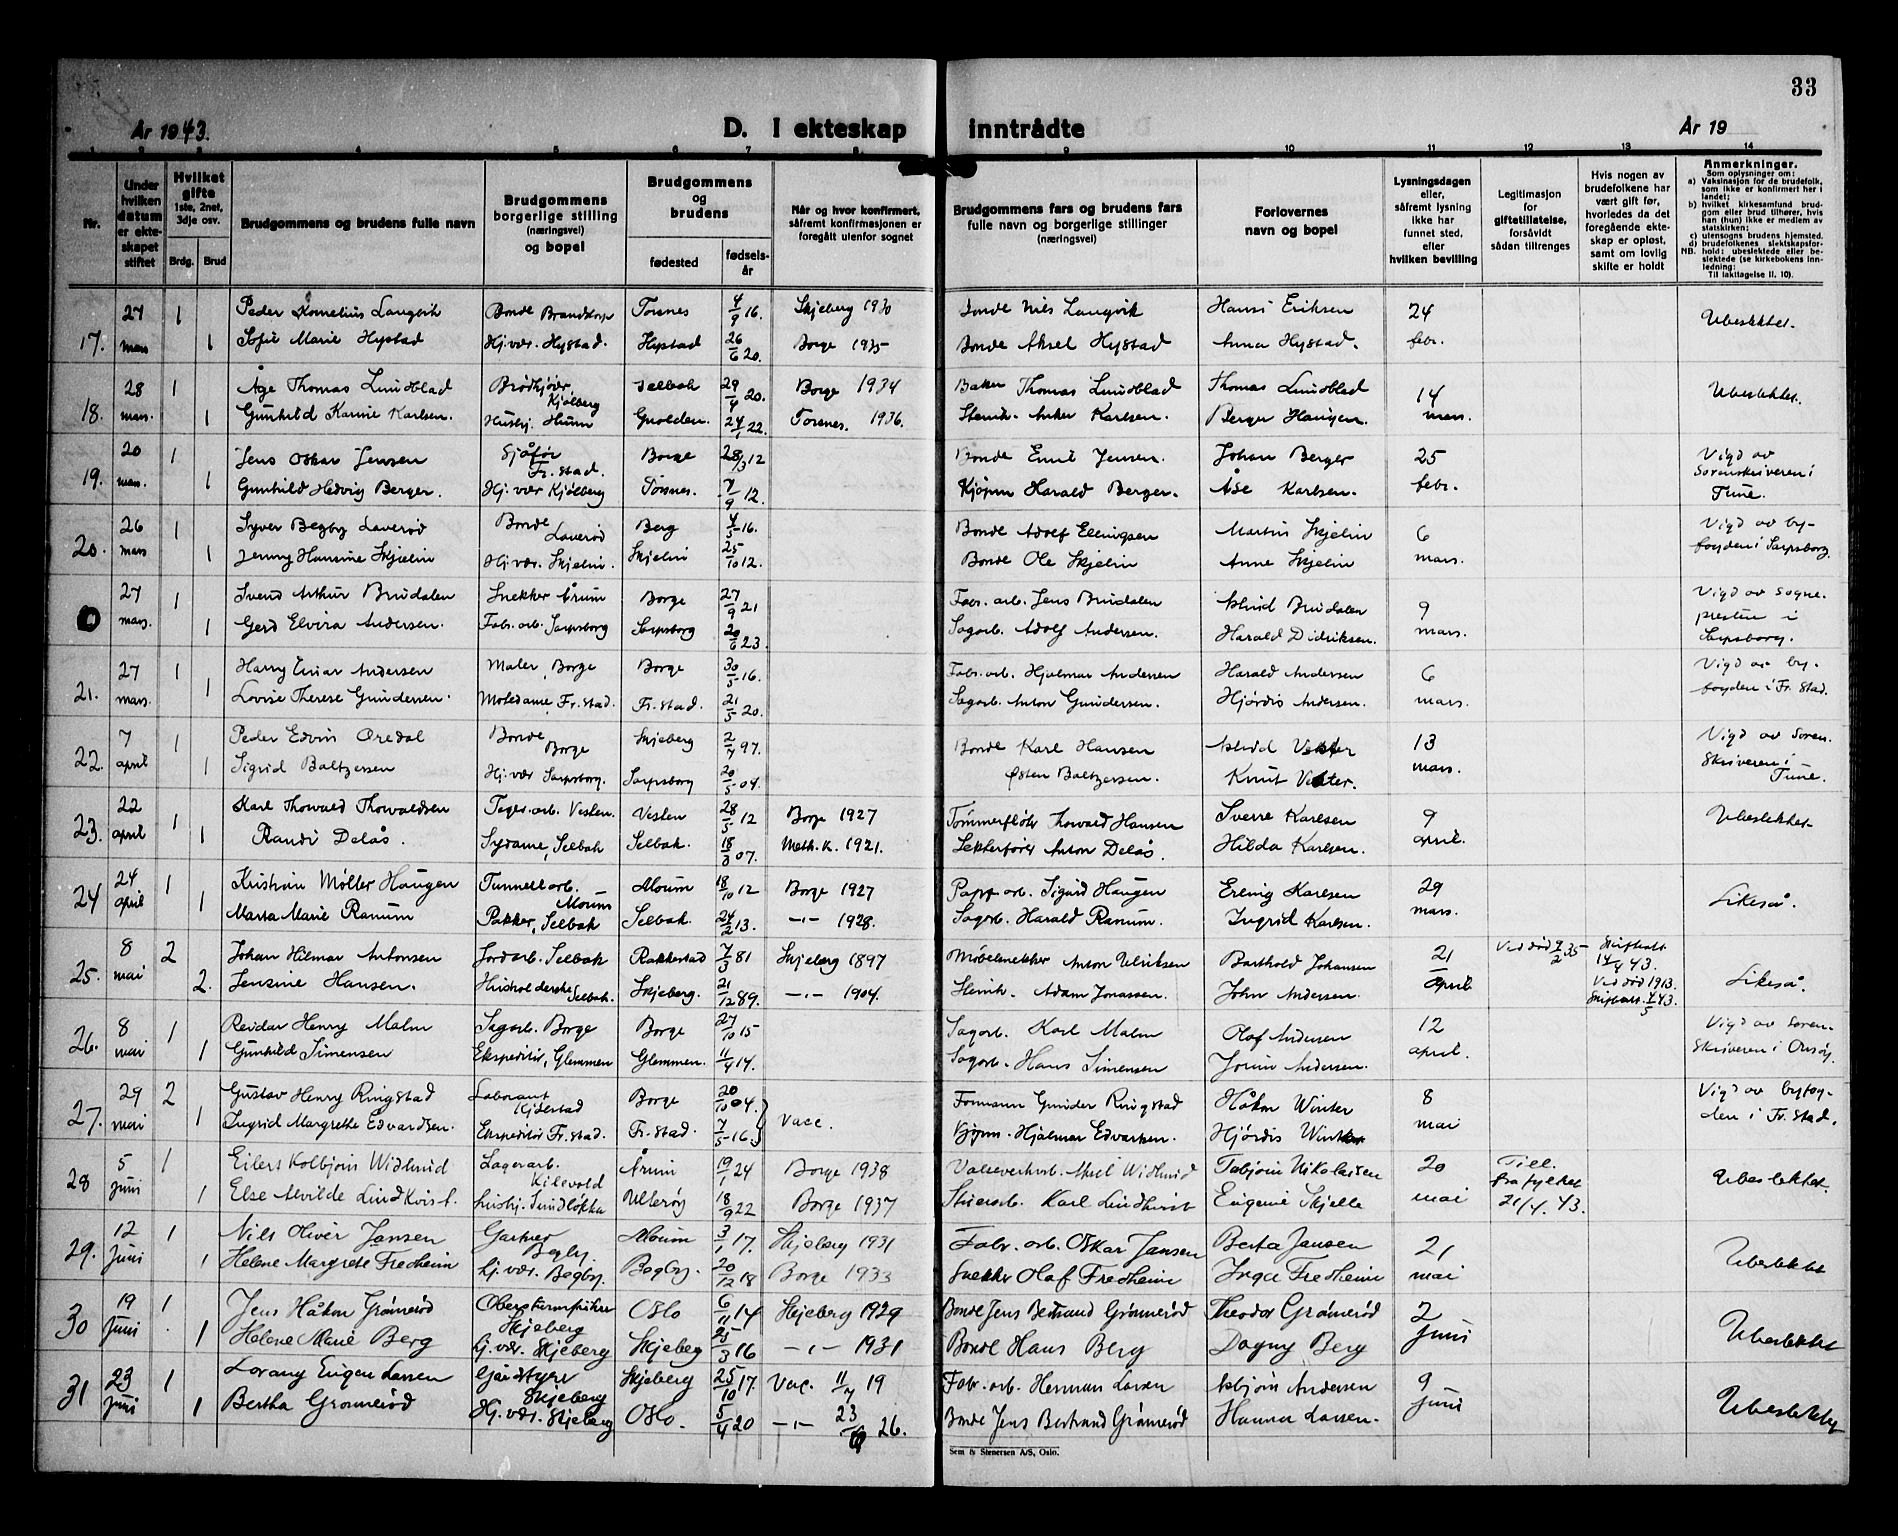 33
År 1943.
D. I ekteskap inntrådte
År 19
1 2 3 4 5 6 7 8 9 10 11 12 13 14
Nr.
Under hvilken datum er ekteskapet stiftet
Hvilket gifte 1ste, 2net, 3dje osv.
Brdg. Brud
Brudgommens og brudens fulle navn
Brudgommens borgerlige stilling (næringsvei) og bopel
Brudgommens og brudens
fødested
fødselsår
Når og hvor konfirmert, såfremt konfirmasjonen er foregått utenfor sognet
Brudgommens fars og brudens fars fulle navn og borgerlige stillinger (næringsvei)
Forlovernes navn og bopel
Lysningsdagen eller, såfremt lysning ikke har funnet sted, efter hvilken bevilling
Legitimasjon for giftetillatelse, forsåvidt sådan tiltrenges
Hvis nogen av brudefolkene har vært gift før, hvorledes da det foregående ekteskap er opløst, samt om lovlig skifte er holdt
Anmerkninger.
Som oplysninger om:
a) Vaksinasjon for de brudefolk, som ikke er konfirmert her i landet;
b) hvilket kirkesamfund brudgom eller brud tilhører, hvis han (hun) ikke er medlem av statskirken;
c) utensogns brudens hjemsted.
d) brudefolkenes slektskapsforhold: ubeslektede eller beslektede (se kirkebokens innledning:
NB. Til iakttagelse II. 10).
17. 27 mars 1 Peder Kornelius Langvik Bonde Brandtorp Torsnes 4/9 16. Skjeberg 1930 Bonde Nils Langvik Hans Eriksen 24 febr. Ubeslektet.
1 Sofie Marie Hystad Hj.vær. Hystad. Hystad 26/6 20. Borge 1935 Bonde Aksel Hystad Anna Hystad.
18. 28 mars. 1 Åge Thomas Lundblad Brødkjører, Kjølberg Selbak 29/4 20. Borge 1934 Baker Thomas Lundblad Thomas Lundblad 14 mars. Ubeslektet.
1 Gunhild Karine Karlsen. Hushj. Hunn 24/1 22. Torsnes. 1936. Stenh. Anker Karlsen. Berger Haugen.
19. 20 mars. 1 Jens Oskar Jensen Sjåfør Fr.stad. Borge 28/3 12 Bonde Emil Jensen. Johan Berger 25 febr. Vigd av Sorenskriveren i Tune.
1 Gunhild Hedvig Berger. Hj.vær Kjølberg Torsnes. 7/9 12. Kjøpm Harald Berger. Åse Karlsen.
20. 26 mars 1 Syver Begby Laverød Bonde Laverød Berg 4/5 16. Bonde Adolf Ellingsen Martin Skjelin 6 mars. Vigd av byfogden i Sarpsborg
1 Jenny Hansine Skjelin Hj.vær. Skjelin. Skjelin 25/10 12. Bonde Ole Skjelin Anne Skjelin
27 mars. 1 Svend Arthur Brudalen Snekker Årum Borge 27/9 21 Fabr.arb. Jens Brudalen Astrid Brudalen 9 mars. Vigd av Sognepresten i Sarpsborg.
1 Gerd Elvira Andersen. Fabr.arb. Sarpsborg Sarpsborg 20/6 23. Sagarb. Adolf Andersen. Harald Didriksen.
21. 27 mars. 1 Harry Einar Andersen Maler, Borge Borge 30/5 16. Fabr.arb. Hjalmar Andersen Harald Andersen 6 mars. Vigd av byfogden i Fr.stad.
1 Lovise Therese Gundersen. Motedame, Fr.stad. Fr.stad. 21/5 20. Sagarb. Anton Gundersen. Hjørdis Andersen.
22. 7 april 1 Peder Edvin Oredal Bonde, Borge Skjeberg 97. Bonde Karl Hansen 13 mars. Vigd av Sorenskriveren i Tune.
1 Sigrid Baltzersen Hj.vær Sarpsborg. Sarpsborg 20/5 04. Østen Baltzersen. Knut
23. 22 april 1 Karl Thorvald Thorvaldsen Tegv.arb. Vesten. Vesten 28/5 12 Borge 1927 Tømmerfløter Thorvald Hansen Sverre Karlsen 9 april. Ubeslektet
1 Randi Delås. Sydame, Selbak Selbak. 18/3 07. Meth.K. 1921. Anton Delås. Hilda Karlsen.
24 24 april 1 Kristian Møller Haugen Tunnelarb. Moum Moum 18/10 12 Borge 1927 Papp arb. Sigurd Haugen Erling Karlsen 29 mars. Likeså.
1 Marta Marie Ranum Pakker, Selbak Selbak. 24/2 13. —"— 1928. Sagarb. Harald Ranum. Ingrid Karlsen.
25. 8 mai 2 Johan Hilmar Antonsen Jordarb. Selbak Rakkestad 7/3 81 Skjeberg 1897 Møbelsnekker Anton Ulriksen Barthold Johansen 21 april Ved død 35 Skifteatt. 14/4 43. Likeså.
2. Jensine Hansen. Husholderske Selbak. Skjeberg. 21/12 89. —"— 1904. Stenh. Adam Jonassen. John Andersen. Ved død 1913. Skifteatt. 43.
26. 8 mai 1 Reidar Henry Malm Sagarb. Borge Borge 27/10 15 Sagarb. Karl Malm Olaf Andersen 12 april. Vigd av Sorenskriveren i Onsøy.
1 Gunhild Simensen Ekspeditør, Glemmen Glemmen. 11/4 14. Sagarb. Hans Simensen Jorun Andersen.
27. 29 mai 2 Gustav Henry Ringstad Laborant Borge 20/10 04. } Vacc. Formann Gunder Ringstad Håkon Winter 8 mai Vigd av byfogden i Fr.stad.
1 Ingrid Margrethe Edvardsen. Ekspeditør Fr.stad. Fr.stad. 7/5 16. Kjøpm. Hjalmar Edvardsen. Hjørdis Winter
28 5 juni 1 Eilert Kolbjørn Widlund Lagerarb. Årum 19/1 24 Borge 1938 Valseverkarb. Aksel Widlund Torbjørn Nikolaisen 20 mai Till. fra fylket 21/4. 43. Ubeslektet.
1 Else Alvilde Lindkvist. Hushj. Sundløkka Ullerøy 18/9 22 Borge 1937 Karl Lindkvist Eugenie Skjelle
29. 12 juni 1 Nils Oliver Jansen Gartner Begby. Moum 3/1 17. Skjeberg 1931 Fabr.arb. Oskar Jansen Berta Jansen 21 mai Ubeslektet
1 Helene Margrete Fredheim Hj.vær. Begby. Begby. 20/12 18 Borge 1933 Snekker Olaf Fredheim Inga Fredheim
30 19 juni 1 Jens Håkon Grømerød Skjeberg Oslo 6/11 14 Skjeberg 1929 Bonde Jens Bertrand Grømerød Theodor Grømerød 2 juni Ubeslektet
1 Helene Marie Berg Hj.vær. Skjeberg Skjeberg 25/3 16 —"— 1931 Bonde Hans Berg Dagny Berg
31 23 juni 1 Lorang Eugen Larsen Gårdstyrer Skjeberg Skjeberg 25/10 17. Vac. 11/7 19 Fabr.arb. Herman Larsen Asbjørn Andersen 9 juni Ubeslektet
1 Bertha Grømerød Hj.vær. Skjeberg Oslo. 5/4 20 —"— 23/ 26. Bonde Jens Bertrand Grømerød Hanna Larsen.
Sem & Stenersen A/S, Oslo.